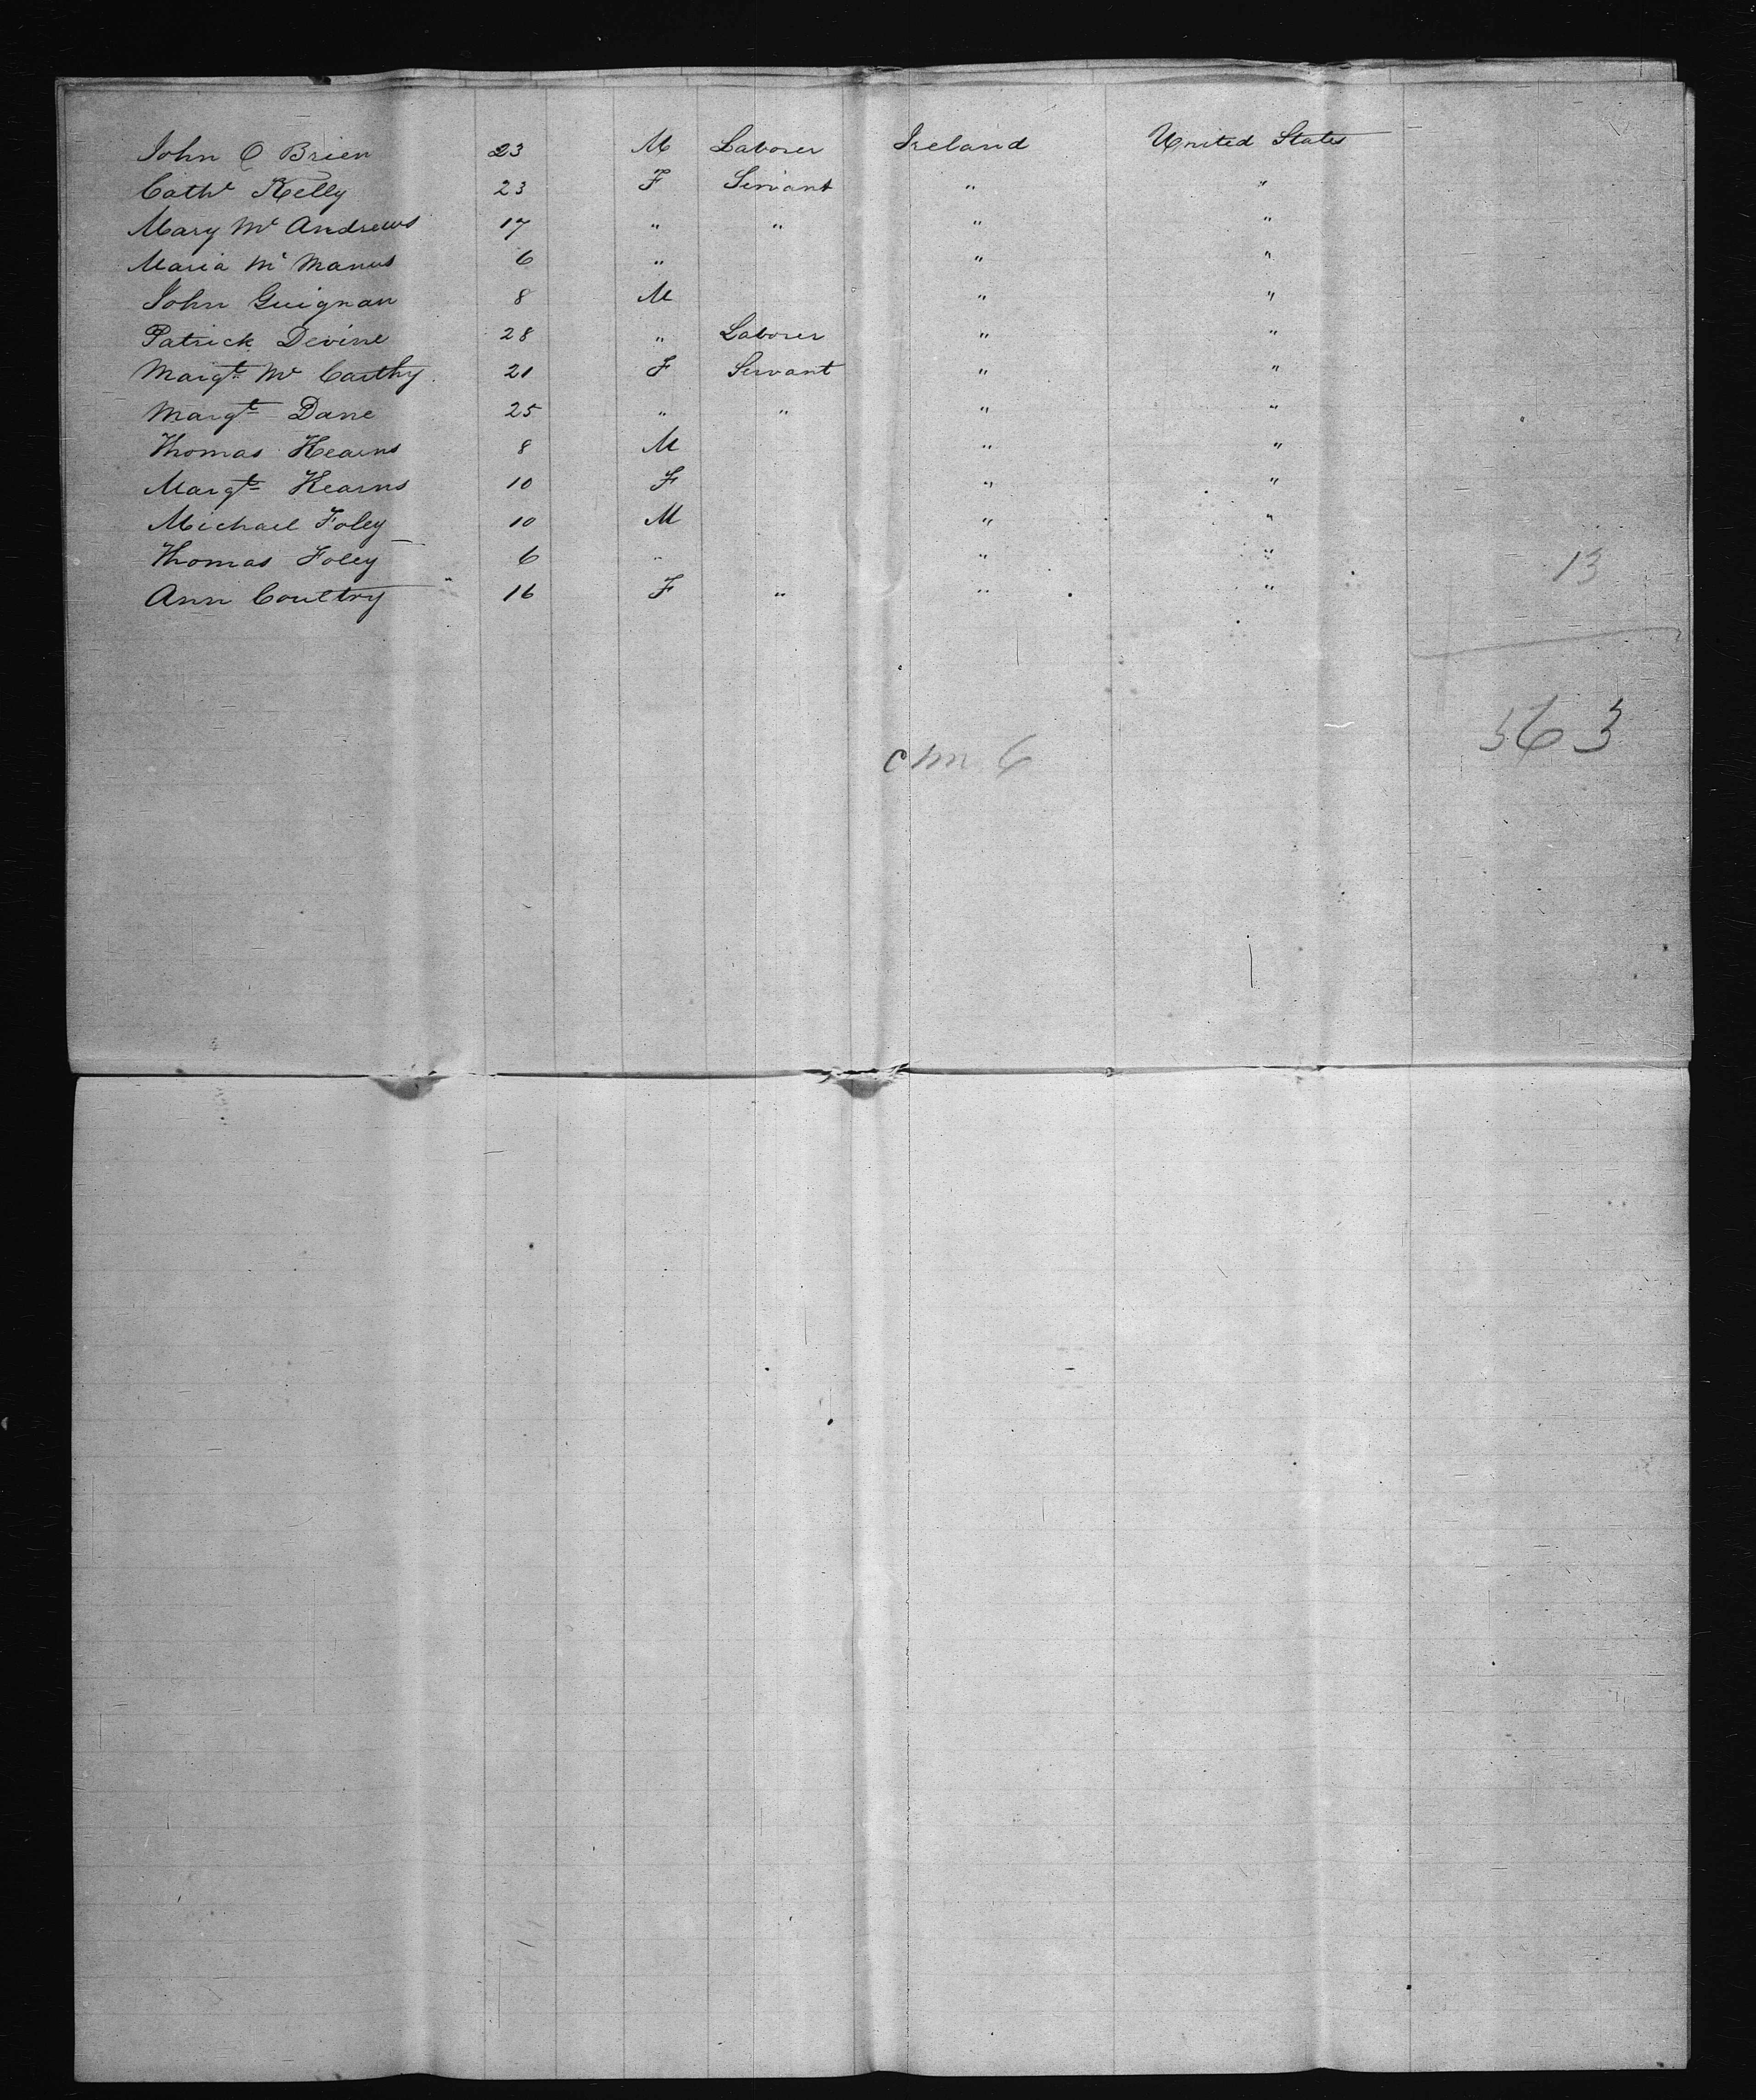 John O Brien 23 M Laborer Ireland United States
Cathe Kelly 23 F Servant " "
Mary Mc Andrews 17 " " " "
Maria Mc Manus 6 " " "
John Guignan 8 M " "
Patrick Devine 28 " Laborer " "
Margt Mc Carthy 21 F Servant " "
Margt Dane 25 " " " "
Thomas Hearns 8 M " "
Margt Hearns 10 F " "
Michael Foley 10 M " "
Thomas Foley 6 " " "
Ann Coultry 16 F " " "
13
563